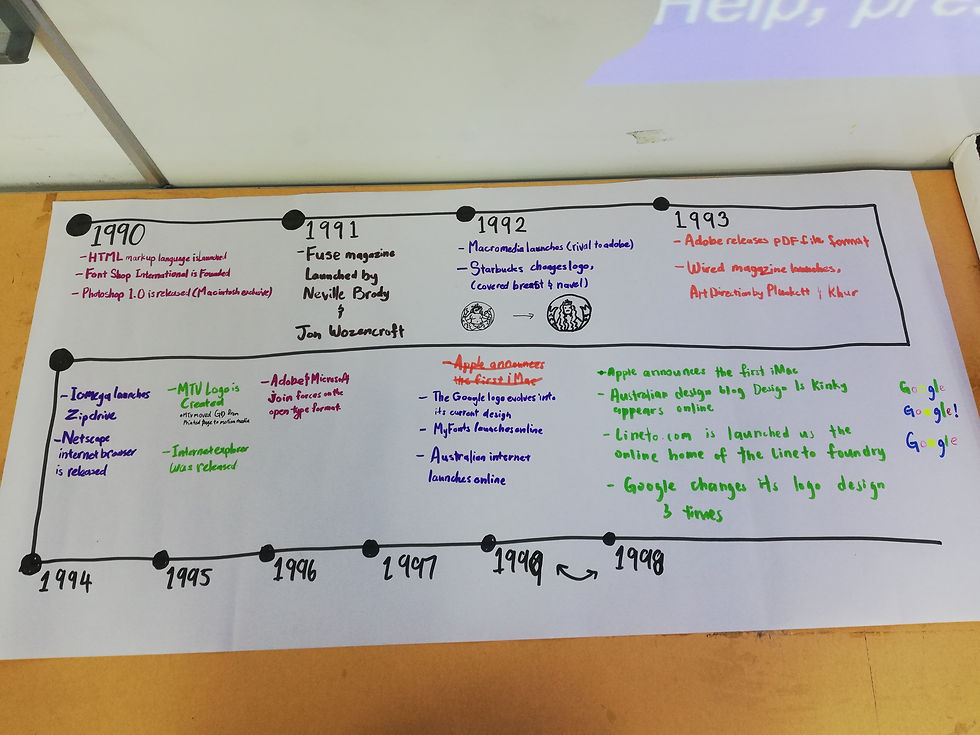 Help, pre
1990
- HTML markup language is Launched
- Font Shop International is Founded
- Photoshop 1.0 is released (Macintosh exclusive)
1991
- Fuse magazine
Launched by
Neville Brody
&
Jon Wozencroft
1992
- Macromedia launches (rival to adobe)
- Starbucks changes logo,
(covered breast & navel)
1993
- Adobe releases PDF file format
- Wired magazine launches,
Art Direction by Plunkett & Khur
- Iomega launches
Zip drive
- Netscape
internet browser
is released
- MTV Logo is
Created
• MTV moved GD from
Printed page to motion media
- Internet explorer
was released
- Adobe & Microsoft
Join forces on the
open type format
- Apple announces
the first iMac
- The Google logo evolves into
its current design
- MyFonts launches online
- Australian internet
launches online
- Apple announces the first iMac
- Australian design blog Design Is Kinky
appears online
- Lineto.com is launched us the
online home of the Lineto foundry
- Google changes its logo design
3 times
Google
Google!
Google
1994
1995
1996
1997
1999
1998